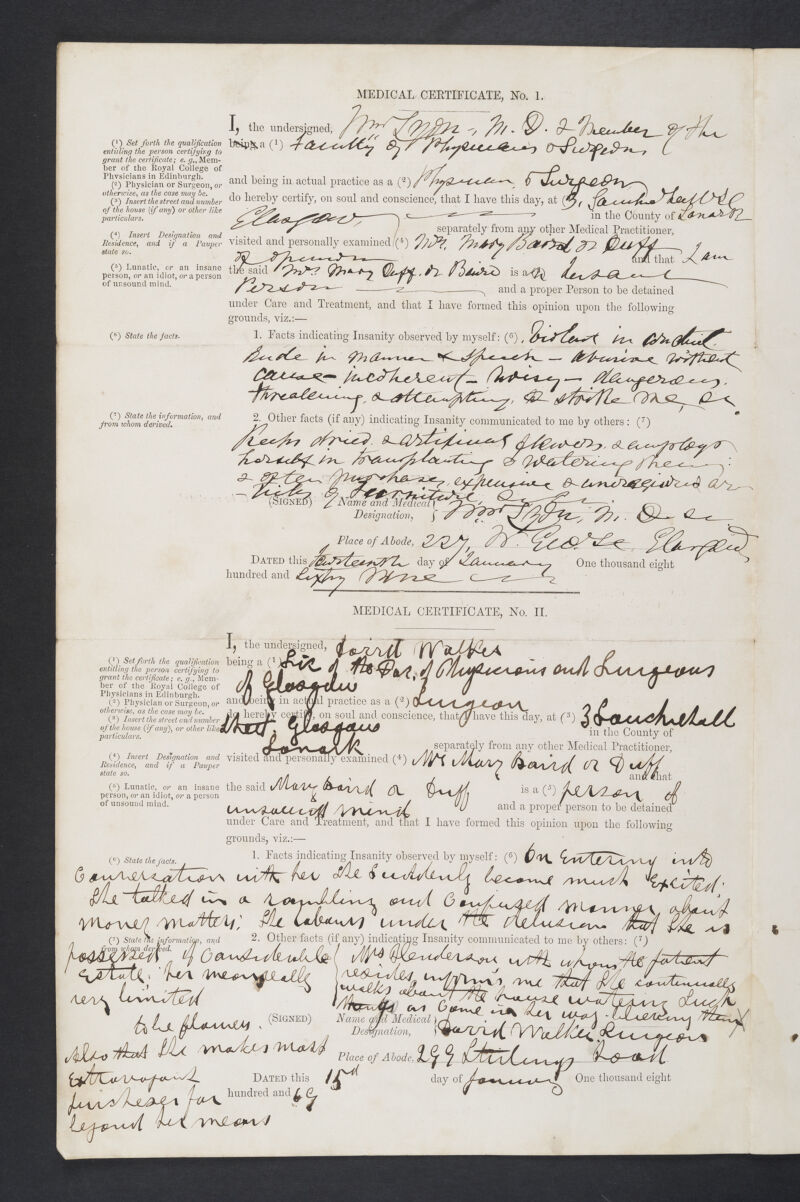 MEDICAL CERTIFICATE, No. 1.
I, the undersigned, Wm Lyon, M. D. & Member of the
being a (1) Faculty of Physicians & Surgeons
(1) Set forth the qualification
entitling the person certifying to
grant the certificate; e. g., Mem-
ber of the Royal College of
Physicians in Edinburgh.
and being in actual practice as a (2) Physician & Surgeon
(2) Physician or Surgeon, or
otherwise, as the case may be.
do hereby certify, on soul and conscience, that I have this day, at (3) 3, Sauchiehall St
(3) Insert the street and number
of the house (if any) or other like
particulars.
Glasgow, in the County of Lanark
separately from any other Medical Practitioner,
(4) Insert Designation and
Residence, and if a Pauper
state so.
visited and personally examined (4) Mrs. Mary Baird or Duff
of opinion and that I am
(5) Lunatic, or an insane
person, or an idiot, or a person
of unsound mind.
the said Mrs. Mary Duff or Baird is a (5) Insane
Person and a proper Person to be detained
under Care and Treatment, and that I have formed this opinion upon the following
grounds, viz.:—
(6) State the facts.
1. Facts indicating Insanity observed by myself: (6) Violent in conduct.
Rude in manner & speech – abusive without
cause – incoherent – noisy – dangerous.
threatening & attempting to strike me, &c.
(7) State the information, and
from whom derived.
2. Other facts (if any) indicating Insanity communicated to me by others: (7)
Keeps dried & artificial flowers & employs
herself in transplanting & watering them;
& often purchases expensive & unrequired ar-
-ticles of furniture, &c
(SIGNED) Name and Medical
Designation, Wm Lyon, M. D. &c
Place of Abode, 227, W. Geo. St. Glasgow
DATED this fourteenth day of January One thousand eight
hundred and Sixty Nine
MEDICAL CERTIFICATE, No. II.
I, the undersigned, David Walker
being a (1) Lic of the Fac. of Physicians and Surgeons
of Glasgow
(1) Set forth the qualification
entitling the person certifying to
grant the certificate; e. g., Mem-
ber of the Royal College of
Physicians in Edinburgh.
and being in actual practice as a (2) Surgeon
(2) Physician or Surgeon, or
otherwise, as the case may be.
do hereby certify, on soul and conscience, that I have this day, at (3) 3 Sauchiehall
(3) Insert the street and number
of the house (if any), or other like
particulars.
Street, Glasgow in the County of
Lanark separately from any other Medical Practitioner,
(4) Insert Designation and
Residence, and if a Pauper
state so.
visited and personally examined (4) Mrs Mary Baird or Duff
and that
(5) Lunatic, or an insane
person, or an idiot, or a person
of unsound mind.
the said Mary Baird or Duff is a (5) person of
unsound mind and a proper person to be detained
under Care and Treatment, and that I have formed this opinion upon the following
grounds, viz.:—
(6) State the facts.
1. Facts indicating Insanity observed by myself: (6) On entering into
Conversation with her She Suddenly became much Excited.
She talked in a rambling and Confused manner about
money matters: She labours under the delusion that She is
(7) State the information, and
from whom derived.
possessed of Considerable
Estate: her means really
very limited
2. Other facts (if any) indicating Insanity communicated to me by others: (7)
Mrs Henderson with whom the patient
resides, informs me that She continually
walks about the house watering Such
things as Come in her way believing them
to be flowers.
Also that She makes most
Extravagant
purchases far
beyond her means
(SIGNED) Name and Medical
Designation, David Walker Surgeon
Place of Abode, 299 Stirlings Road
DATED this 15th day of January One thousand eight
hundred and 69